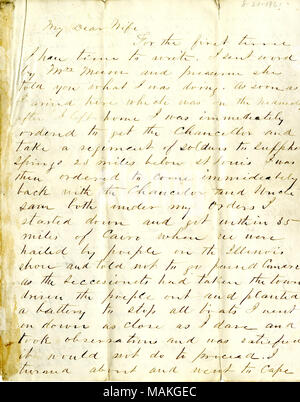 8-21-1861
My Dear Wife
For the first time
I have time to write. I sent word
by Mrs Mason and presume she
told you what I was doing. As soon as
I arrived here which was on the
after I left home I was immediately
ordered to get the Chancellor and
take a regiment of soldiers to Sulpher
Springs 23 miles below St Louis I was
then ordered to come immediately
back with the Chancelor and Uncle
Sam both under my orders I
started down and got within 35
miles of Cairo when we were
hailed by people on the Illinois
shore and told not to go
as the secessionists had taken the town
driven the people out and planted
a battery to stop all boats I went
on down as close as I dare and
took observations and was satisfied
it would not do to proceed. I
turned about and went to Cape
alamy
MAKGEC